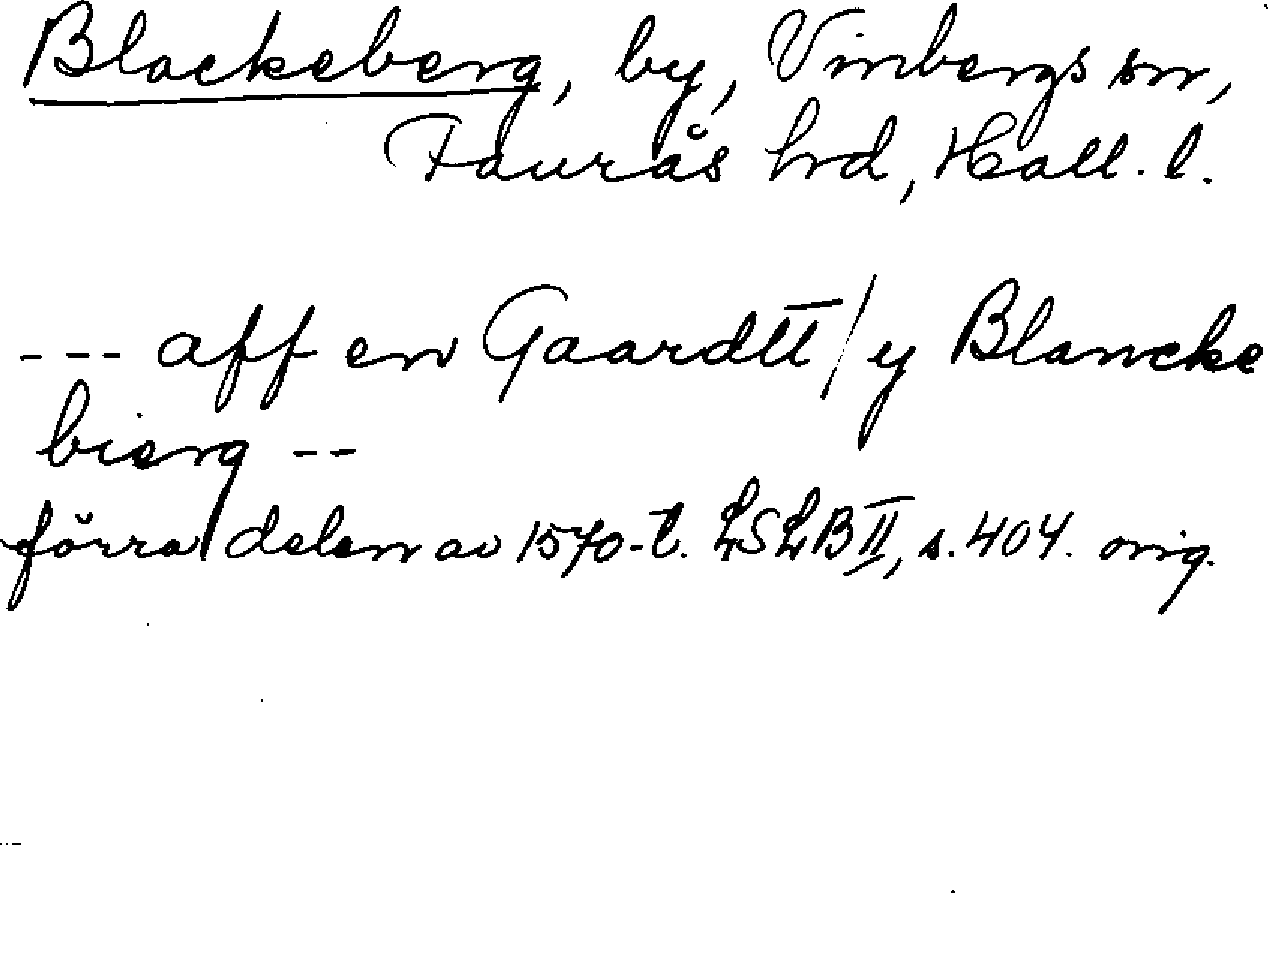 Blackeberg, by, Vinbergs sn,
Faurås hrd, Hall. l.
--- aff en Gaardtt / y Blancke
bierg --
förra delen av 1570-t. LSLB II, s. 404. orig.